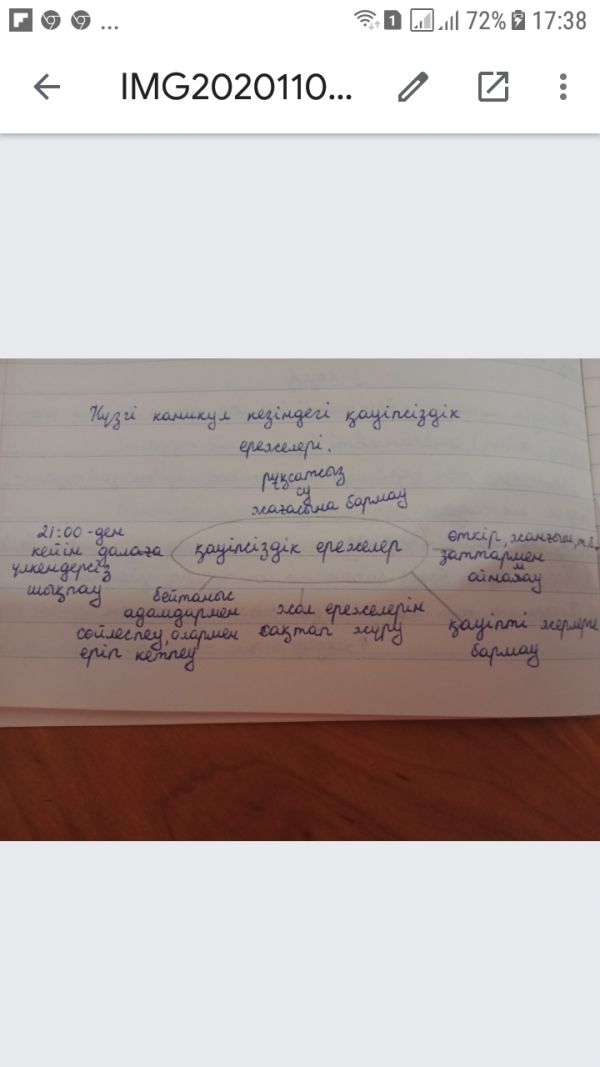 ... 1 72% 17:38
IMG2020110...
Күзгі каникул кезіндегі қауіпсіздік
ережелері.
рұқсатсыз
су
жағасына бармау
21:00-ден
кейін далаға
үлкендерсіз
шықпау
қауіпсіздік ережелер
өткір, жанғыш, т.б.
заттармен
ойнамау
бейтаныс
адамдармен
сөйлеспеу, олармен
еріп кетпеу
жол ережелерін
сақтап жүру
қауіпті жерлерге
бармау